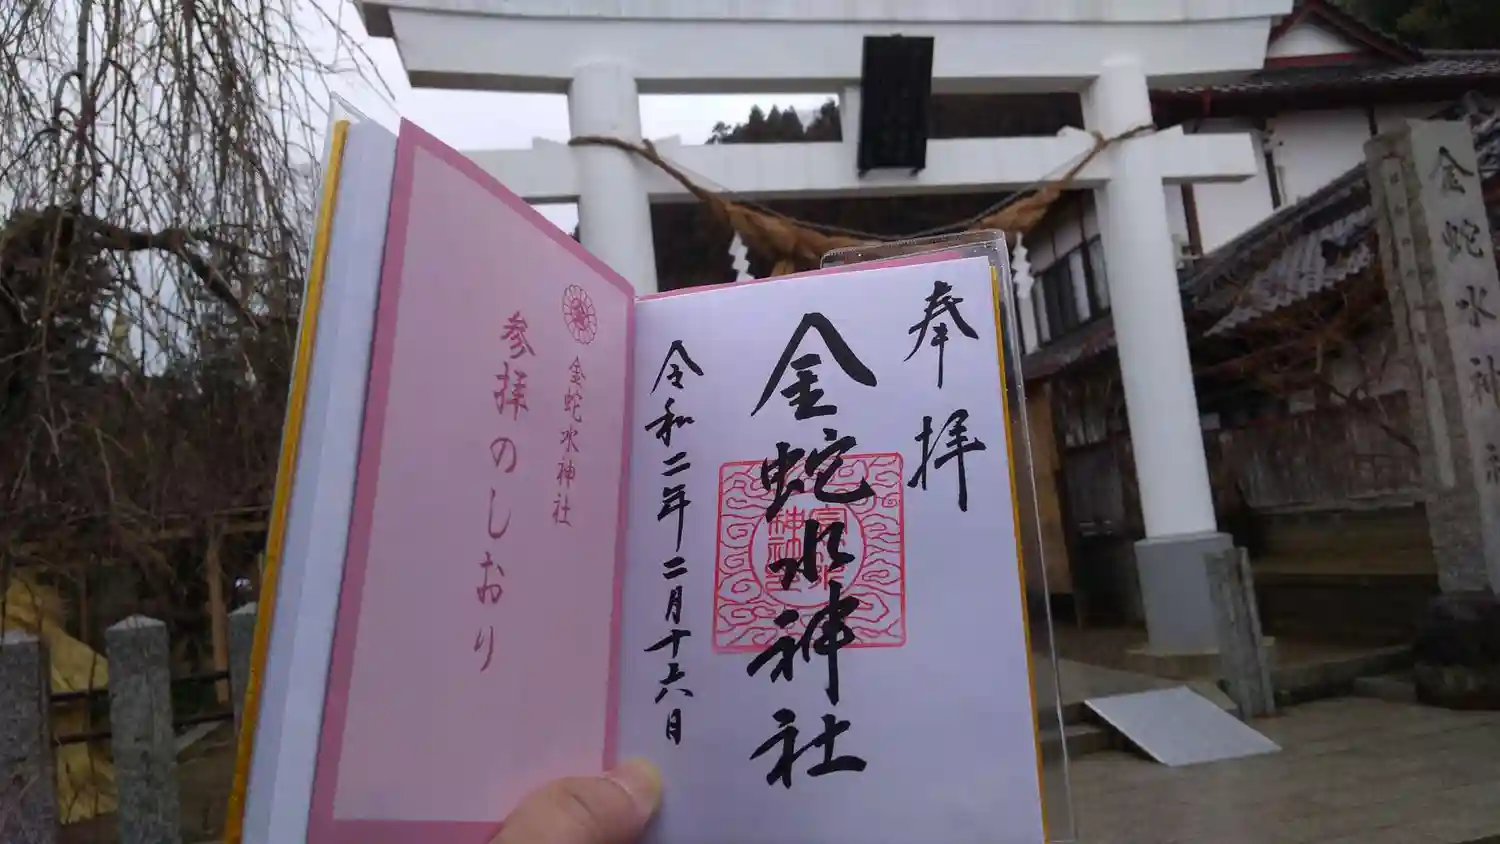 金蛇水神社
奉拝
金蛇水神社
令和二年二月十六日
金蛇水神社
参拝のしおり